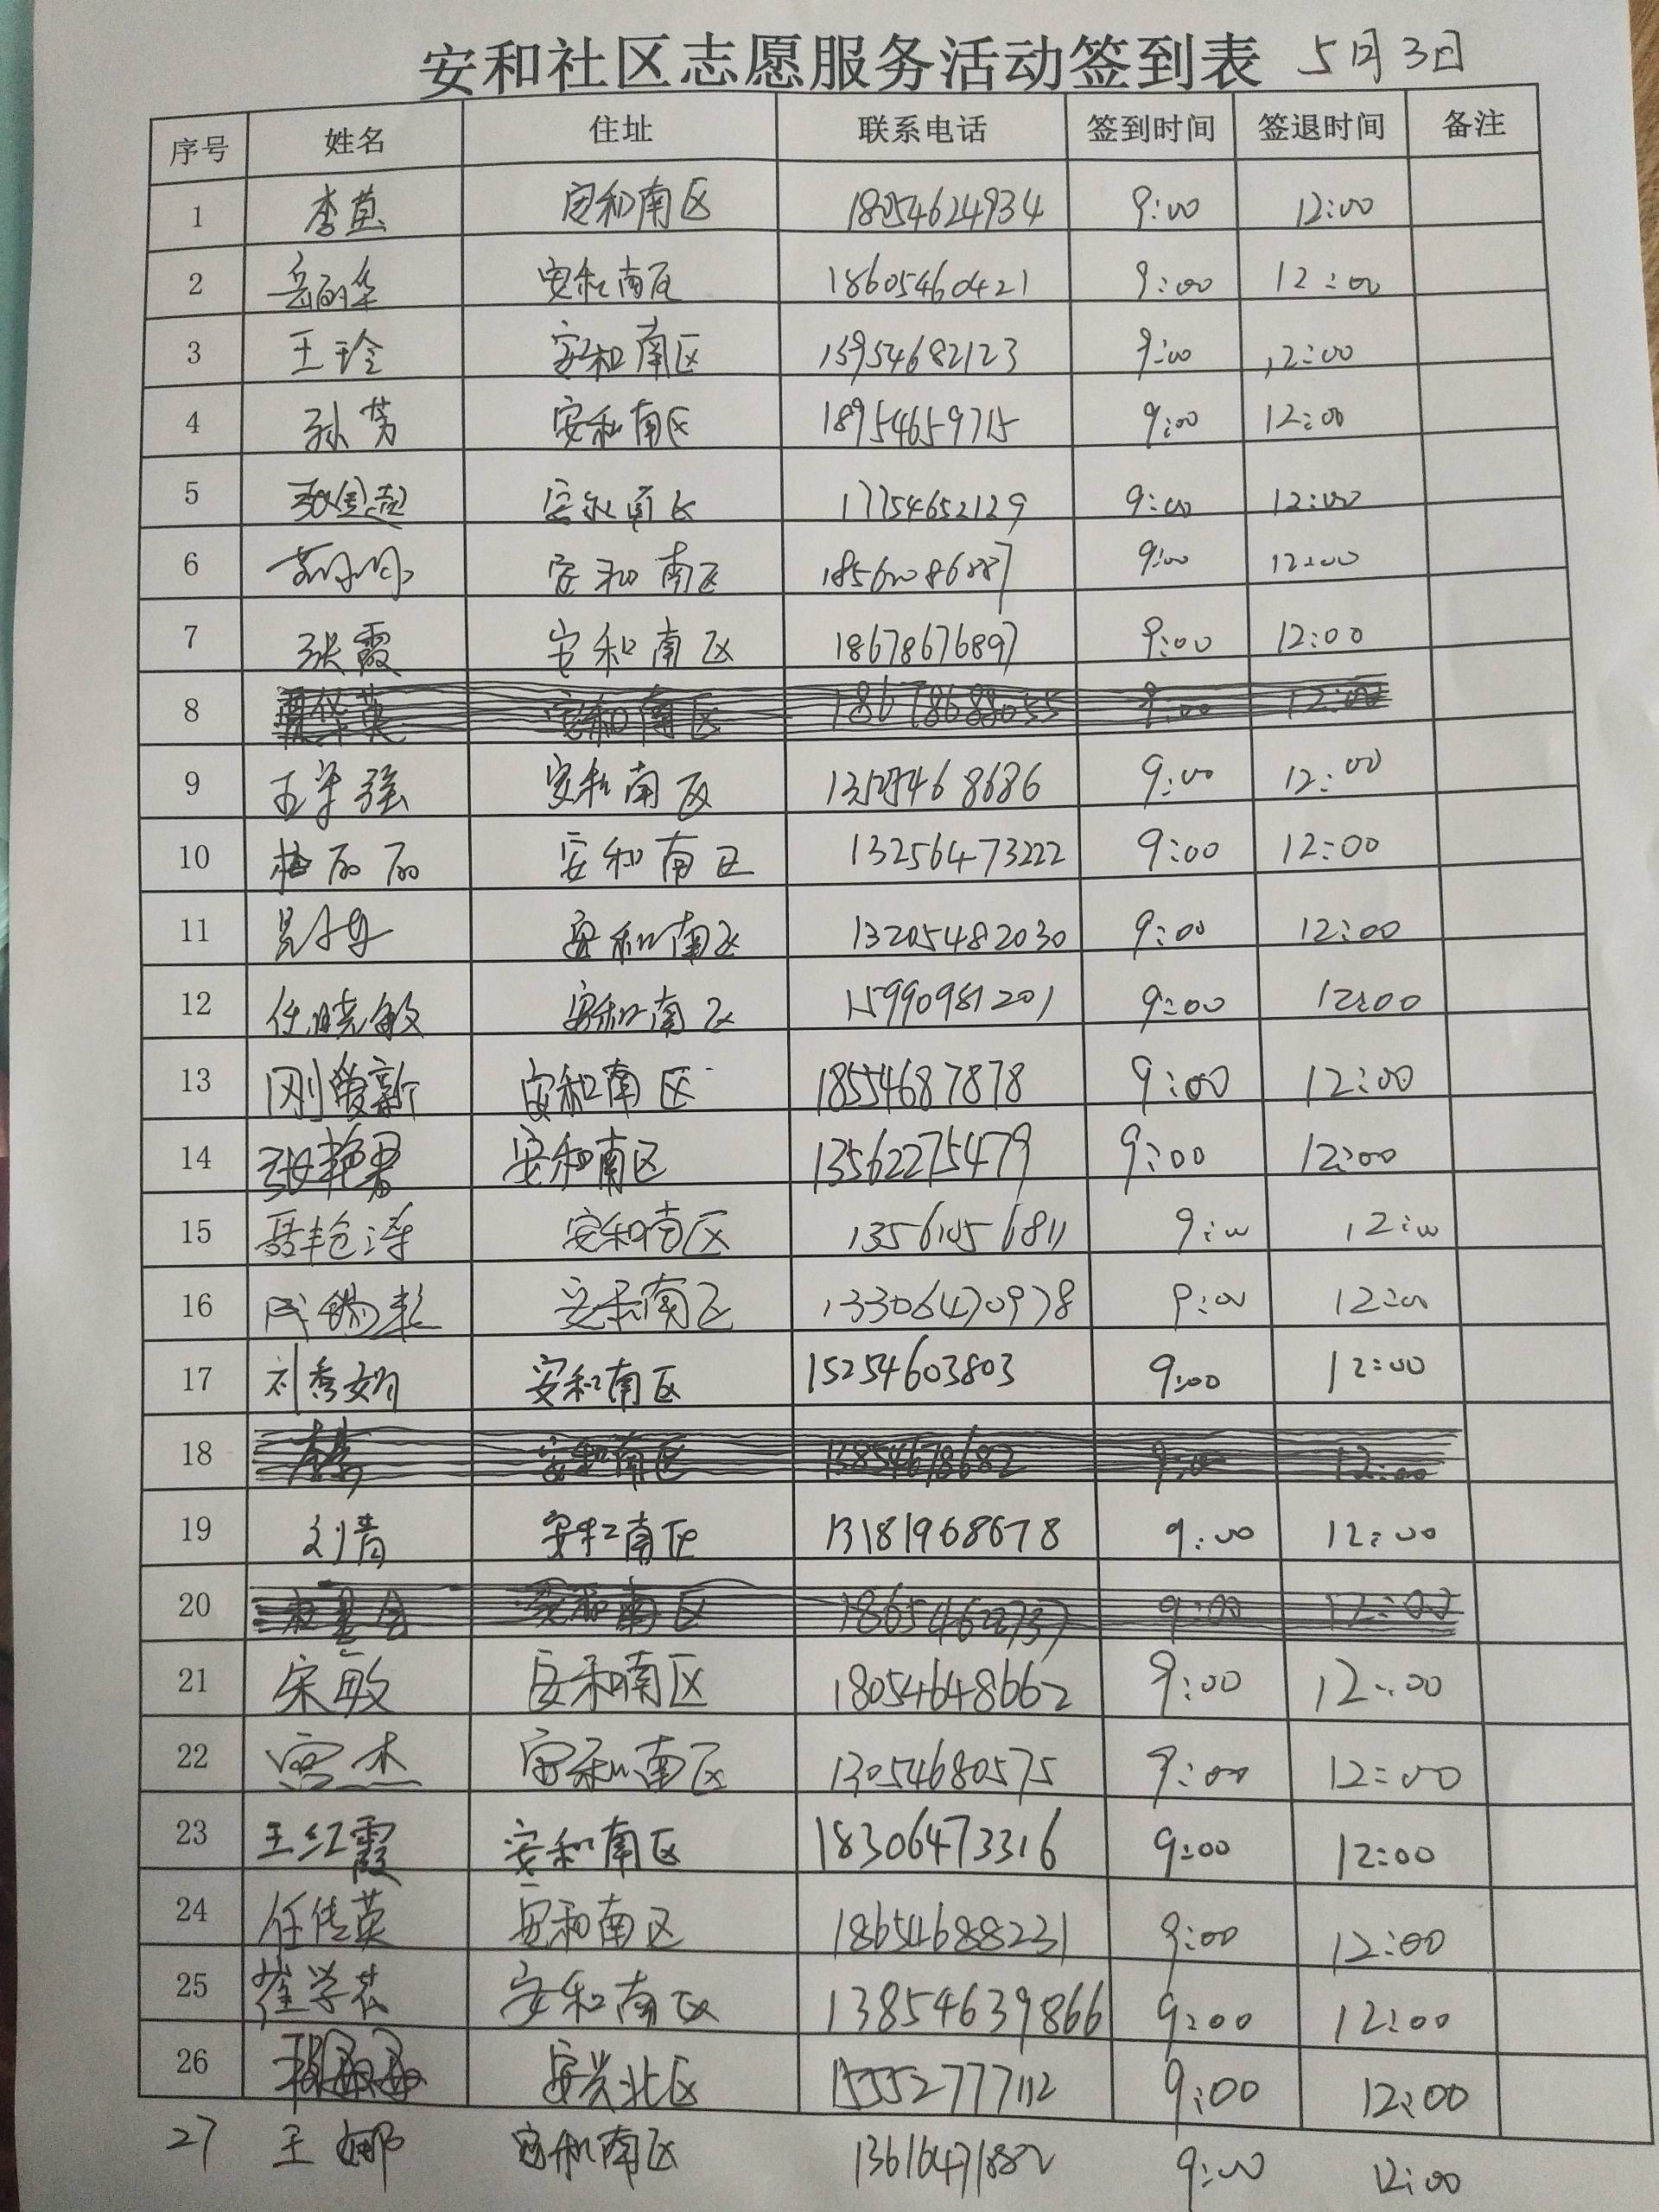 安和社区志愿服务活动签到表 5月3日
序号 姓名 住址 联系电话 签到时间 签退时间 备注
1 李莫 安和南区 18054624934 9:00 12:00
2 安和南区 18605460421 9:00 12:00
3 王玲 安和南区 15954682123 9:00 12:00
4 孙芳 安和南区 18954659715 9:00 12:00
5 安和南区 17754652129 9:00 12:00
6 安和南区 9:00 12:00
7 张霞 安和南区 18678676897 9:00 12:00
8 安和南区 18678688055 9:00 12:00
9 安和南区 9:00 12:00
10 丽丽 安和南区 13256473222 9:00 12:00
11 安和南区 13205482030 9:00 12:00
12 任晓敏 安和南区 15990981201 9:00 12:00
13 刚爱新 安和南区 18554687878 9:00 12:00
14 张艳君 安和南区 13562275479 9:00 12:00
15 安和南区 13561056811 9:00 12:00
16 安和南区 13306470978 9:00 12:00
17 刘秀娟 安和南区 15254603803 9:00 12:00
18 安和南区 13854678682 9:00 12:00
19 刘青 安和南区 13181968678 9:00 12:00
20 安和南区 9:00 12:00
21 宋敏 安和南区 18054648662 9:00 12:00
22 宫杰 安和南区 13054680575 9:00 12:00
23 王红霞 安和南区 18306473316 9:00 12:00
24 任传英 安和南区 18654688231 9:00 12:00
25 崔学花 安和南区 13854639866 9:00 12:00
26 安兴北区 15552777112 9:00 12:00
27 王娜 安和南区 13616471882 9:00 12:00